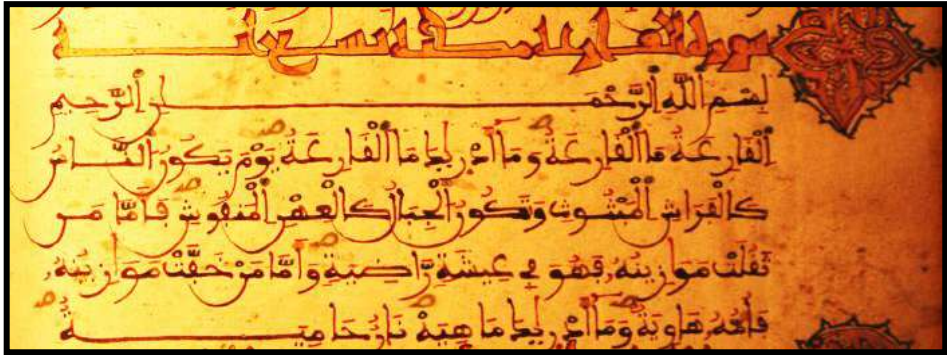 سورة القارعة مكية تسع اية
بِسْمِ اللَّهِ الرَّحْمَـٰنِ الرَّحِيمِ
الْقَارِعَةُ مَا الْقَارِعَةُ وَمَا أَدْرِيكَ مَا الْقَارِعَةُ يَوْمَ يَكُونُ النَّاسُ
كَالْفَرَاشِ الْمَبْثُوثِ وَتَكُونُ الْجِبَالُ كَالْعِهْنِ الْمَنفُوشِ فَأَمَّا مَن
ثَقُلَتْ مَوَازِينُهُ فَهُوَ فِي عِيشَةٍ رَّاضِيَةٍ وَأَمَّا مَنْ خَفَّتْ مَوَازِينُهُ
فَأُمُّهُ هَاوِيَةٌ وَمَا أَدْرِيكَ مَا هِيَهْ نَارٌ حَامِيَةٌ